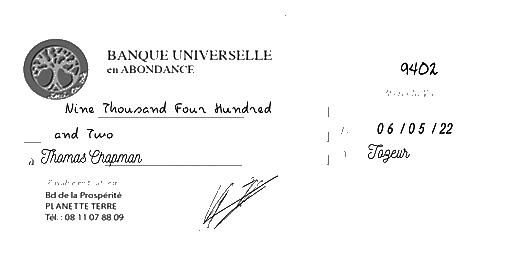 BANQUE UNIVERSELLE
en ABONDANCE
9402
Nine Thousand Four Hundred
and Two
06/05/22
à Thomas Chapman
Tozeur
Bd de la Prospérité
PLANETTE TERRE
Tél. : 08 11 07 88 09